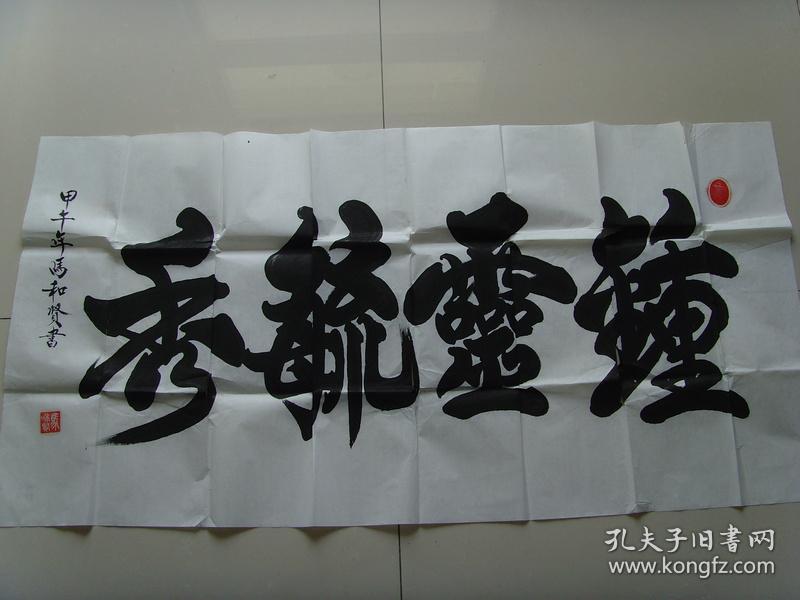 鍾靈毓秀
甲午年馬和賢書
孔夫子旧书网
www.kongfz.com